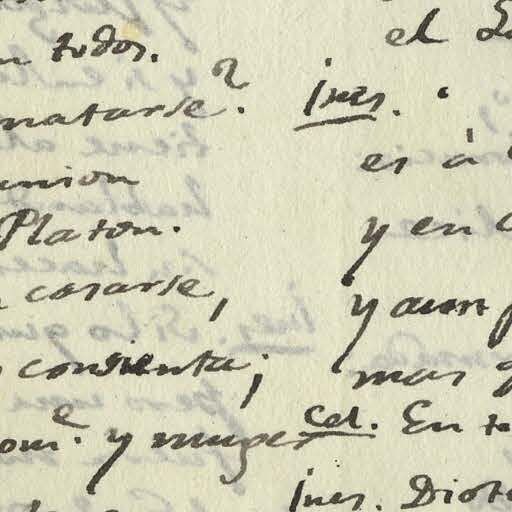 todos.
matarse?
union
Platon.
casarse,
consienta;
y muger
el
Ines.
es à
y en
y aun
mas
Cel. En
Ines. Diot